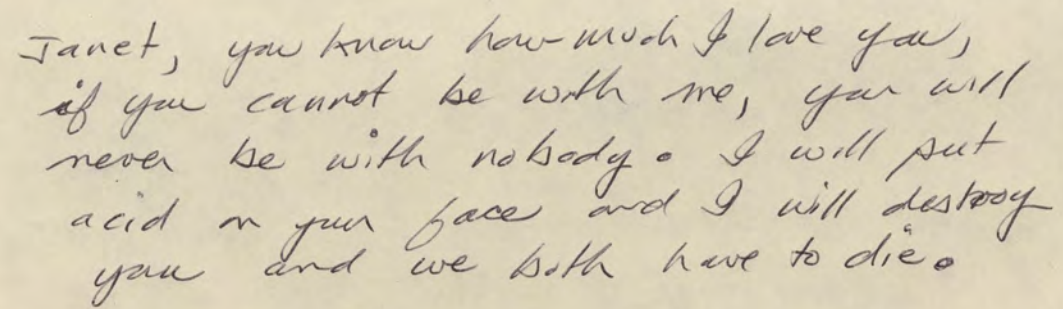 Janet, you know how much I love you,
if you cannot be with me, you will
never be with nobody. I will put
acid on your face and I will destroy
you and we both have to die.